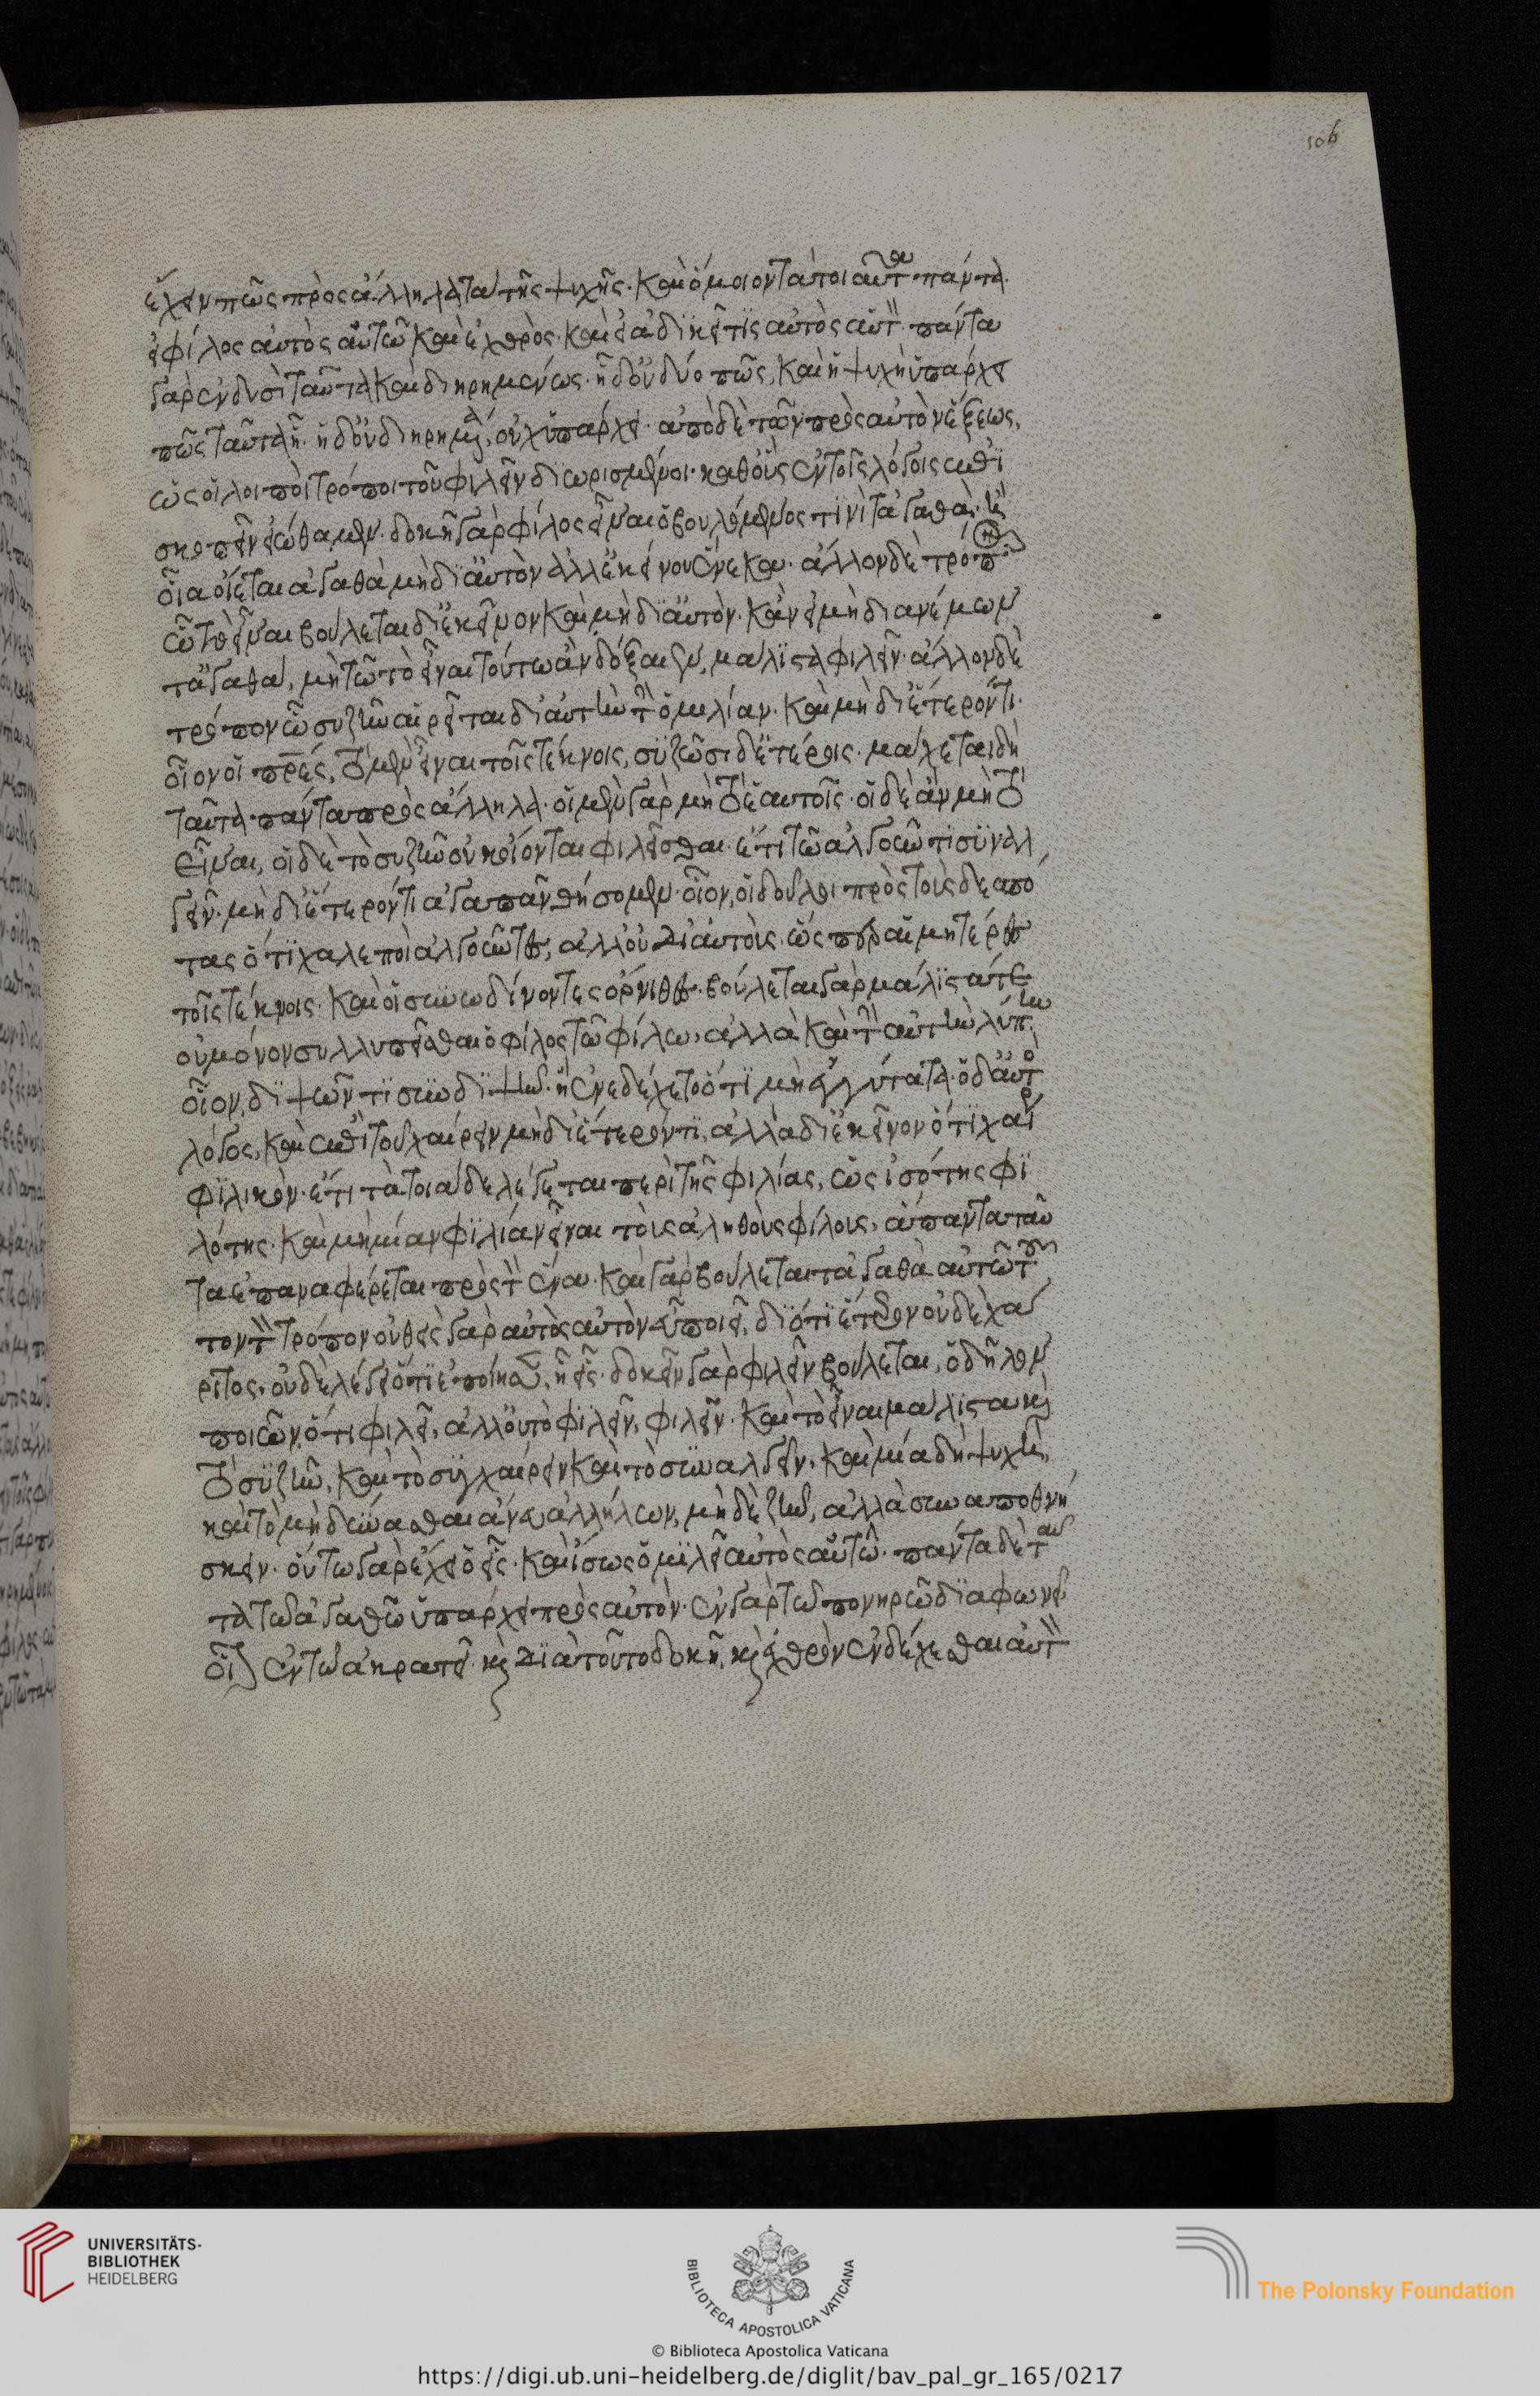 106
ἔχειν πῶς πρὸς ἄλληλα τὰ τῆς ψυχῆς. καὶ ὅμοιον τὰ τοιαῦτα πάντα.
εἰ φίλος αὐτὸς αὑτῶ καὶ ἐχθρὸς. καὶ εἰ ἀδικεῖ τις αὐτὸς αὑτὸν. πάντα
γὰρ ἐν δυσὶ ταῦτα καὶ διηρημένως. εἰ δ' οὖν δύο πῶς, καὶ ἡ ψυχὴ ὑπάρχει
πῶς ταῦτα εἰ. εἰ δ' οὖν διηρημένα, οὐχ ὑπάρχει. ἀπὸ δὲ τῶν πρὸς αὐτὸν ἕξεως,
ὡς οἱ λοιποὶ τρόποι τοῦ φιλεῖν διωρισμένοι. καθ' οὓς ἐν τοῖς λόγοις ἐπι
σκοπεῖν εἰώθαμεν. δοκεῖ γὰρ φίλος εἶναι ὁ βουλόμενός τινι τἀγαθὰ. ἢ
οἷα οἴεται ἀγαθὰ μὴ δι' αὑτὸν ἀλλ' ἐκείνου ἕνεκα. ἄλλον δὲ τρόπον
ὧ τὸ εἶναι βούλεται δι' ἐκεῖνον καὶ μὴ δι' αὑτὸν. κἂν εἰ μὴ διανέμων
τἀγαθὰ, μὴ τῶ τὸ εἶναι τούτω ἂν δόξαιεν, μάλιστα φιλεῖν. ἄλλον δὲ
τρόπον ὧ συζῆν αἱρεῖται δι' αὐτὴν τὴν ὁμιλίαν. καὶ μὴ δι' ἕτερόν τι.
οἷον οἱ πρες, τὸ μὲν εἶναι τοῖς τέκνοις, συζῶσι δ' ἑτέροις. μάχεται δὴ
ταῦτα πάντα πρὸς ἄλληλα. οἱ μὲν γὰρ μὴ τὸ ἑαυτοῖς. οἱ δὲ ἂν μὴ τὸ
εἶναι, οἱ δὲ τὸ συζῆν οὐκ οἴονται φιλεῖσθαι. ἔτι τῶ ἀλγοῦντι συναλ
γεῖν. μὴ δι' ἕτερόν τι ἀγαπᾶν θήσομεν. οἷον, οἱ δοῦλοι πρὸς τοὺς δεσπό
τας ὅτι χαλεποὶ ἀλγοῦντες, ἀλλ' οὐ δι' αὐτοὺς. ὥσπερ αἱ μητέρες
τοῖς τέκνοις. καὶ οἱ συνωδίνοντες ὄρνιθες. βούλεται γὰρ μάλιστά τε
οὐ μόνον συλλυπεῖσθαι ὁ φίλος τῶ φίλω, ἀλλὰ καὶ τὴν αὐτὴν λύπην
οἷον, διψῶντι συνδιψῆν. εἰ ἐνεδέχετο ὅτι μὴ ἐγγύτατα. ὁ δ' αὐτὸς
λόγος, καὶ ἐπὶ τοῦ χαίρειν μὴ δι' ἕτερόν τι, ἀλλὰ δι' ἐκεῖνον ὅτι χαίρει
φιλικόν. ἔτι τὰ τοιάδε λέγεται περὶ τῆς φιλίας, ὡς ἰσότης φι
λότης. καὶ μὴ μίαν φιλίαν εἶναι τοὺς ἀληθοὺς φίλους, ἅπαντα ταῦ
τα ἐπαναφέρεται πρὸς τὸν ἕνα. καὶ γὰρ βούλεται τἀγαθὰ αὑτῶ τοῦ
τον τὸν τρόπον οὐθεὶς γὰρ αὐτὸς αὑτὸν εὖ ποιεῖ, διότι ἕτερον οὐδὲ χά
ριτος. οὐδὲ λέγει ὅτι ἐποίησεν, ἧ εἷς. δοκεῖν γὰρ φιλεῖν βούλεται, ὁ δῆλον
ποιῶν, ὅτι φιλεῖ, ἀλλ' οὐ τὸ φιλεῖν, φιλεῖν. καὶ τὸ εἶναι μάλιστα καὶ
τὸ συζῆν, καὶ τὸ συγχαίρειν καὶ τὸ συναλγεῖν. καὶ μία δὴ ψυχὴ,
καὶ τὸ μὴ δύνασθαι ἄνευ ἀλλήλων, μηδὲ ζῆν, ἀλλὰ συναποθνή
σκειν. οὕτω γὰρ ἔχει ὁ εἷς. καὶ ἴσως ὁμιλεῖ αὐτὸς αὑτῶ. πάντα δὲ ταῦ
τα τῶ ἀγαθῶ ὑπάρχει πρὸς αὑτὸν. ἐν γὰρ τῶ πονηρῶ διαφωνεῖ
οἷον ἐν τῶ ἀκρατεῖ. καὶ διὰ τοῦτο δοκεῖ, καὶ ἐχθρὸν ἐνδέχεσθαι αὐτὸν
UNIVERSITÄTS-
BIBLIOTHEK
HEIDELBERG
BIBLIOTECA APOSTOLICA VATICANA
The Polonsky Foundation
© Biblioteca Apostolica Vaticana
https://digi.ub.uni-heidelberg.de/diglit/bav_pal_gr_165/0217